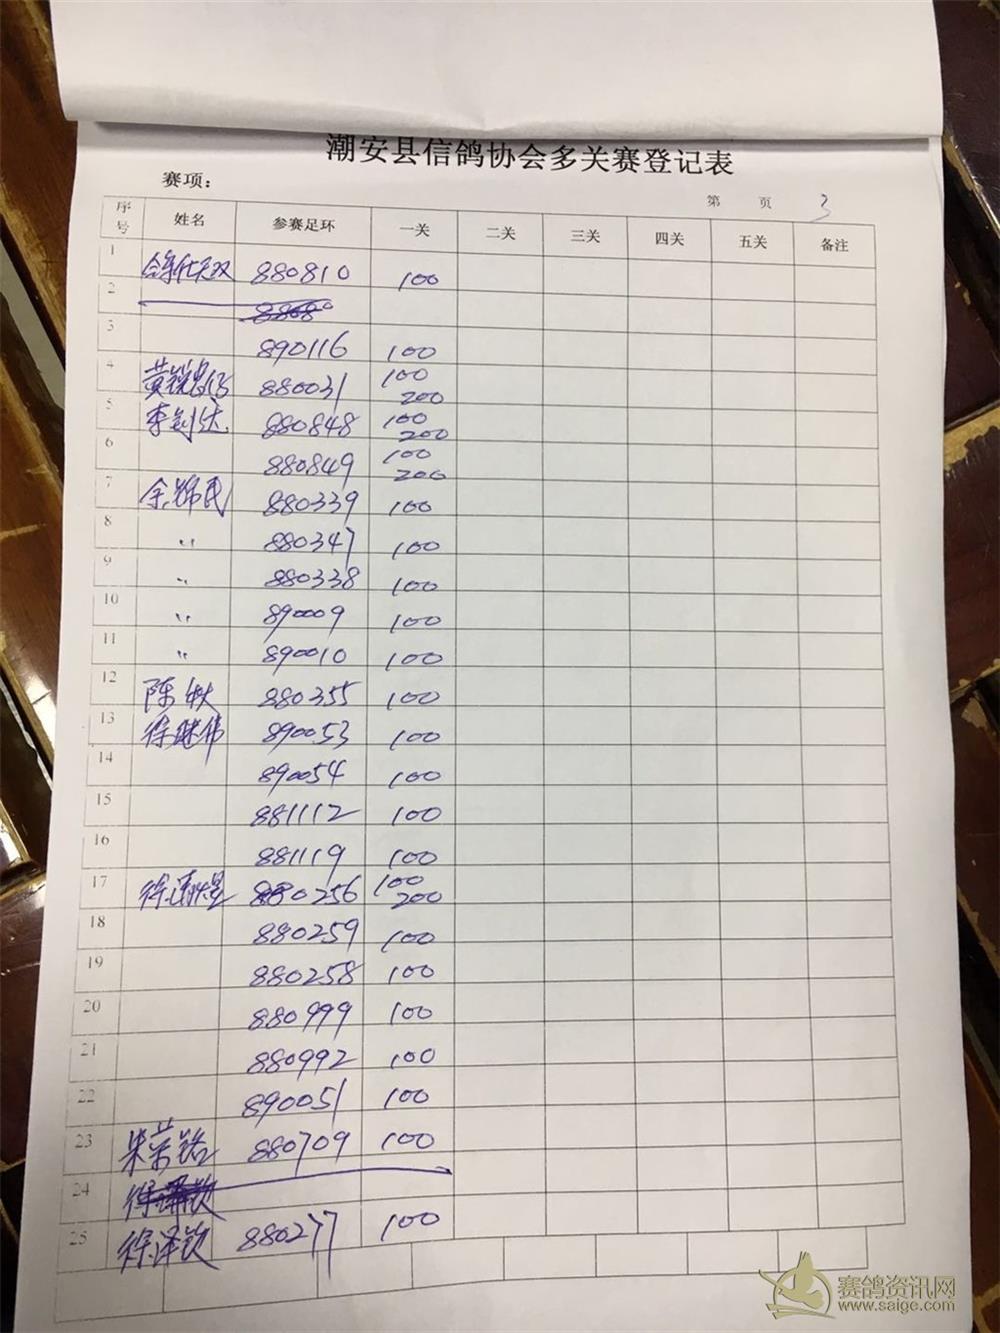 潮安县信鸽协会多关赛登记表
赛项：
第 页 3
序号 姓名 参赛足环 一关 二关 三关 四关 五关 备注
1 880810 100
2
3 890116 100
4 880031 100 200
5 880848 100 200
6 880849 100 200
7 余锦民 880339 100
8 〃 880347 100
9 〃 880338 100
10 〃 890009 100
11 〃 890010 100
12 陈 880355 100
13 徐继伟 890053 100
14 890054 100
15 881112 100
16 881119 100
17 徐 880256 100 200
18 880259 100
19 880258 100
20 880999 100
21 880992 100
22 890051 100
23 朱荣铭 880709 100
24
25 徐泽钦 880277 100
赛鸽资讯网
www.saige.com